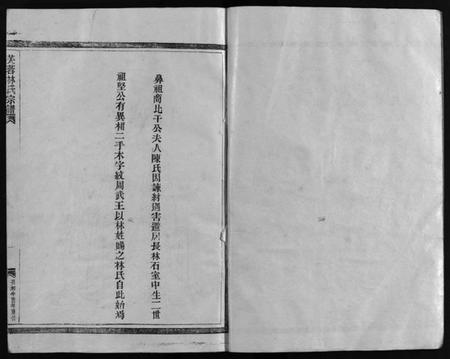 鼻祖商比干公夫人陳氏因諫紂遇害避居長林石室中生二世
祖堅公有異相二手木字紋周武王以林姓賜之林氏自此始焉
芙蓉林氏宗譜